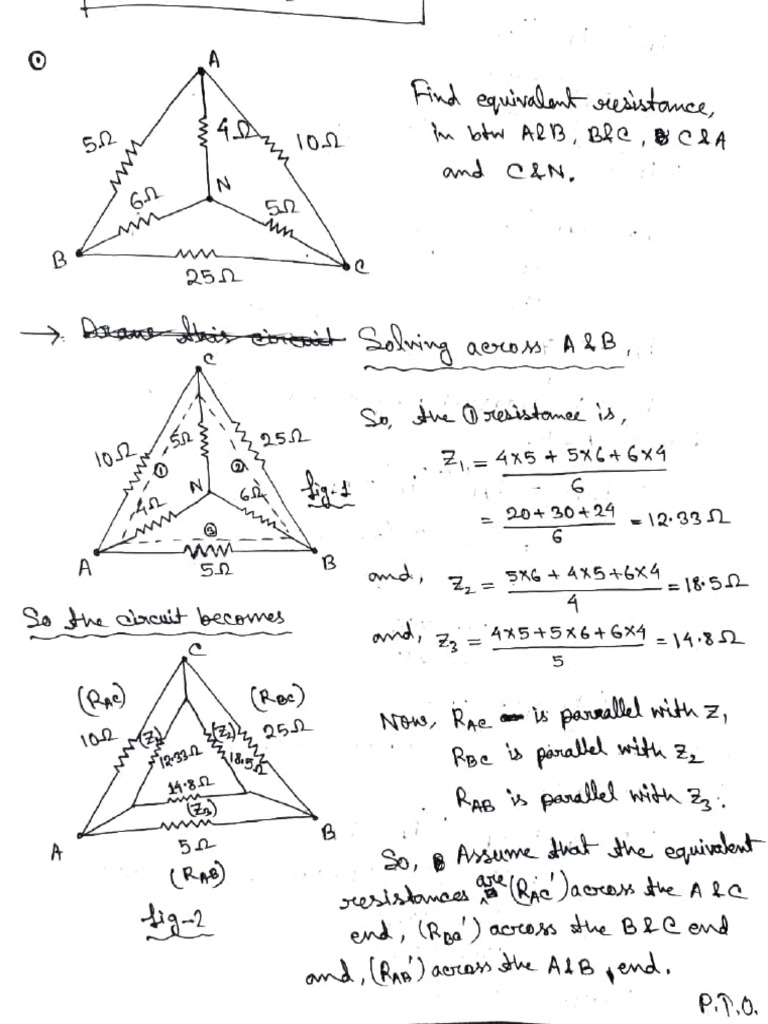 ①
A
5Ω
4Ω
10Ω
N
6Ω
5Ω
B
25Ω
C
Find equivalent resistance,
in btw A&B, B&C, C&A
and C&N.
→ Solving across A & B,
C
10Ω
5Ω
25Ω
①
②
N
4Ω
6Ω
fig-1
③
A
5Ω
B
So, the ① resistance is,
Z₁ = 4×5 + 5×6 + 6×4 / 6
= 20+30+24 / 6 = 12.33Ω
and, Z₂ = 5×6 + 4×5 + 6×4 / 4 = 18.5Ω
and, Z₃ = 4×5 + 5×6 + 6×4 / 5 = 14.8Ω
So the circuit becomes
C
(R_AC)
(R_BC)
10Ω
(Z₁)
(Z₂)
25Ω
12.33Ω
18.5Ω
14.8Ω
(Z₃)
A
5Ω
B
(R_AB)
fig-2
Now, R_AC is parallel with Z₁
R_BC is parallel with Z₂
R_AB is parallel with Z₃.
So, Assume that the equivalent
resistances are (R_AC') across the A & C
end, (R_BC') across the B & C end
and, (R_AB') across the A&B end.
P.T.O.